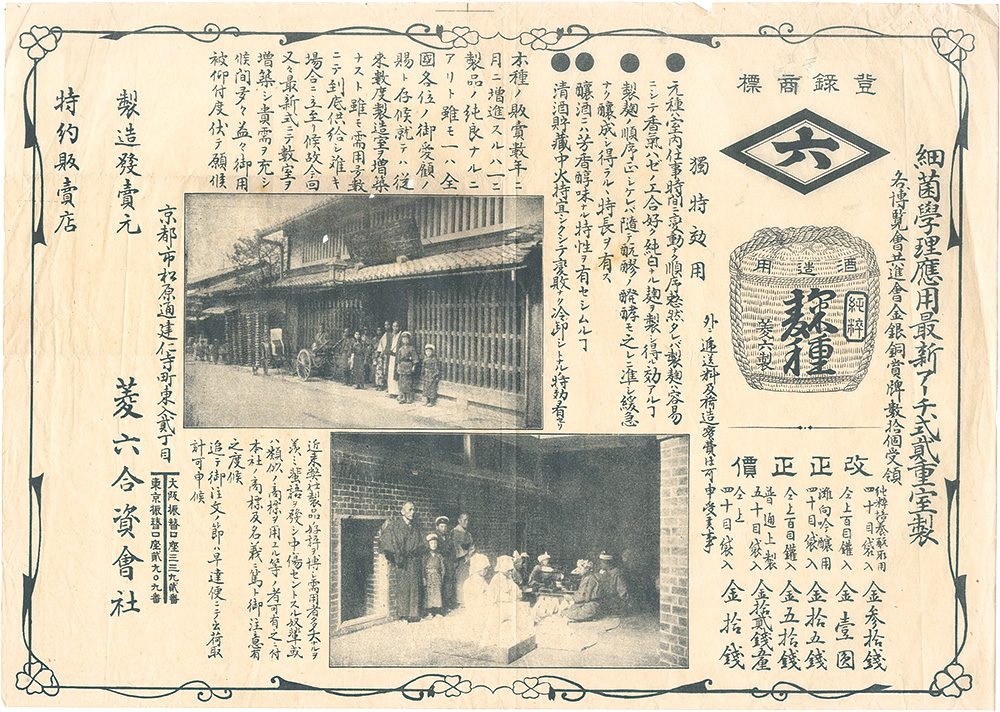 細菌學理應用最新アーチ式貳重室製
各博覽會共進會金銀銅賞牌數拾個受領
登錄商標
六
酒造用
純粹
種
菱六製
改正正價
四十目袋入 金參拾錢
仝上百目鑵入 金壹圓
灘向吟釀用
四十目袋入 金拾五錢
仝上百目鑵入 金五拾錢
普通上製
五十目袋入 金拾貳錢五厘
仝上
四十目袋入 金拾錢
外ニ逓送料及荷造實費は可申受候事
獨特効用
元種ハ室内仕事時間ニ變動ナク順序整然タレバ製麹ニ容易
ニシテ香氣ハゼ工合好ク純白ナル麹ヲ製シ得ル効アルヿ
製麹ノ順序正シケレバ隨テ酛醪ノ醗酵モ之レニ準シ緩急
ナク釀成シ得ラルヽ特長ヲ有ス
釀酒ニハ芳香醇味ナル特性ヲ有セシムルヿ
清酒貯藏中火持宜シクシテ變敗ナク冷卸シトナル特効有リ
本種ノ販賣數年ニ
月ニ増進スルハ一ニ
製品ノ純良ナルニ
アリト雖モ一ハ全
國各位ノ御愛顧ノ
賜ト存候就テハ從
來數度製造室ヲ増築
ナスト雖モ需用多數
ニテ到底供給シ難キ
場合ニ立至リ候故今回
又々最新式ニテ數室ヲ
増築シ貴需ヲ充シ
候間多々益々御用
被仰付度伏テ願候
近來弊社製品好評ヲ博シ需用者多大ナルヲ
羨ミ蜚語ヲ發シ中傷セントスル奴輩或
ハ類似ノ商標ヲ用エル等ノ者可有之ニ付
本社ノ商標及名義ニ篤ト御注意有
之度候
追テ御注文ノ節ハ早達便ニテ出荷取
計可申候
製造發賣元
京都市松原通建仁寺町東入貳丁目
菱六合資會社
大阪振替口座三三九貳番
東京振替口座貳九〇九番
特約販賣店